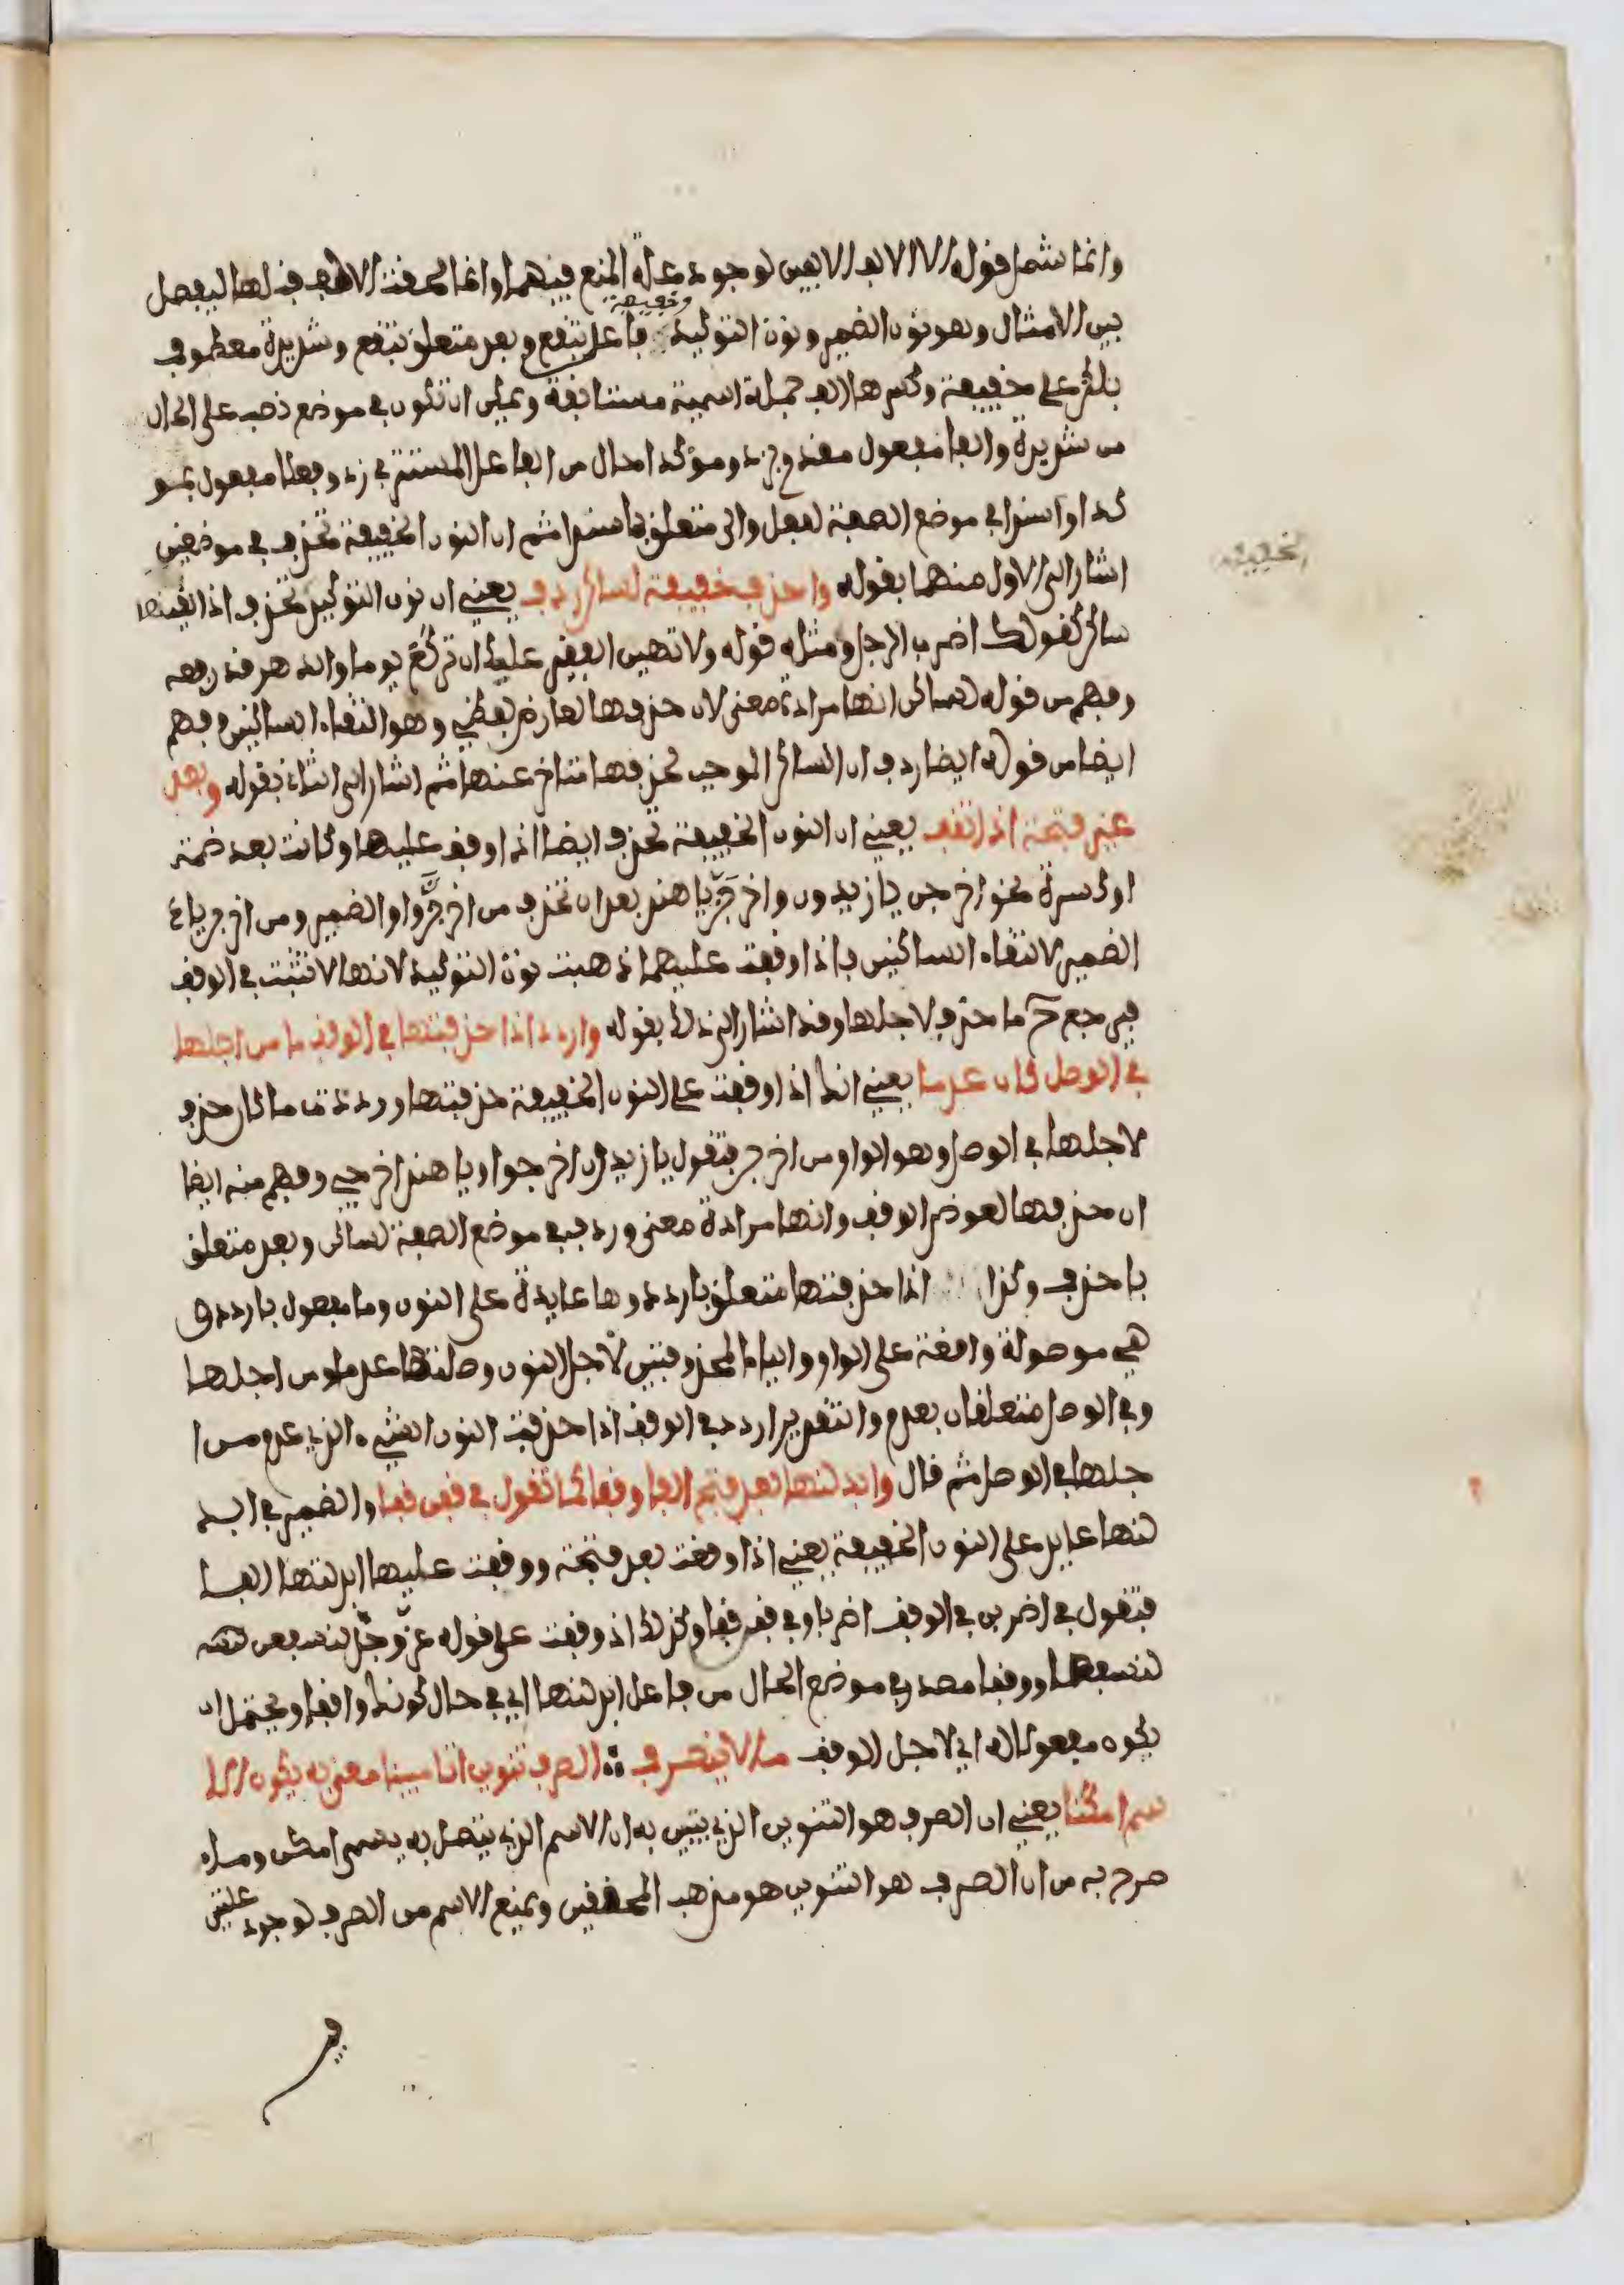 وانما شمل قوله الالف الالفين لوجود علة المنع فيهما وانما لحقت الالف قبلها ليفصل
بين الامثال وهو نون الضمير ونون التوكيد وخفيفة فاعل تقع وبعد متعلق بتقع وشديدة معطوف
بلكن على خفيفة وكسرها الف جملة اسمية مستانفة ويمكن ان تكون في موضع نصب على الحال
من شديدة والفا مفعول مقدم بزد ومؤكدا حال من الفاعل المستتر في زد وفعلا مفعول بمو
كدا واسندا في موضع الصفة لفعل والى متعلق باسندا ثم ان النون الخفيفة تحذف في موضعين
اشار الى الاول منهما بقوله واحذف خفيفة لساكن ردف يعني ان نون التوكيد تحذف اذا لقيها
ساكن كقولك اضرب الرجل ومثله قوله ولا تهين الفقير علك ان تركع يوما والدهر قد رفعه
وفهم من قوله لساكن انها مرادة معنى لان حذفها لعارض لفظي وهو التقاء الساكنين وفهم
ايضا من قوله ايضا ردف ان الساكن الموجب لحذفها متاخر عنها ثم اشار الى الثاني بقوله وبعد
غير فتحة اذا تقف يعني ان النون الخفيفة تحذف ايضا اذا وقف عليها وكانت بعد ضمة
او كسرة نحو اخرجن يا زيدون واخرجن يا هند بعد ان تحذف من اخرجن واو الضمير ومن اخرجن ياء
الضمير لالتقاء الساكنين فاذا وقفت عليهما ذهبت نون التوكيد لانها لا تثبت في الوقف
فيرجع ما حذف لاجلها وقد اشار الى ذلك بقوله واردد اذا حذفتها في الوقف ما من اجلها
في الوصل كان عدما يعني انك اذا وقفت على النون الخفيفة حذفتها ورددت ما كان حذف
لاجلها في الوصل وهو الواو من اخرجن فتقول يا زيدون اخرجوا ويا هند اخرجي وفهم منه ايضا
ان حذفها لعوض الوقف وانها مرادة معنى وردف في موضع الصفة لساكن وبعد متعلق
باحذف وكذا اذا حذفتها متعلق باردد وها عايدة على النون وما مفعول باردد و
هي موصولة واقعة على الواو والياء المحذوفتين لاجل النون وصلتها عدما ومن اجلها
وفي الوصل متعلقان بعدم والتقدير اردد في الوقف اذا حذفت النون الشيء الذي عدم من ا
جلها في الوصل ثم قال وابدلنها بعد فتح الفا وقفا كما تقول في قفن قفا والضمير في ابد
لنها عايد على النون الخفيفة يعني اذا وقعت بعد فتحة ووقفت عليها ابدلتها الفا
فتقول في اضربن في الوقف اضربا وفي قفن قفا وكذلك اذا وقفت على قوله عز وجل لنسفعن
لنسفعا ووقفا مصدر في موضع الحال من فاعل ابدلنها اي في حال كونك واقفا ويحتمل ان
يكون مفعولا له اي لاجل الوقف ما لا ينصرف الصرف تنوين اتى مبينا معنى به يكون الا
سم امكنا يعني ان الصرف هو التنوين الذي يتبين به ان الاسم الذي يتصل به يسمى امكن وما
صرح به من ان الصرف هو التنوين هو مذهب المحققين ويمنع الاسم من الصرف لوجود علتين
الخفيفة